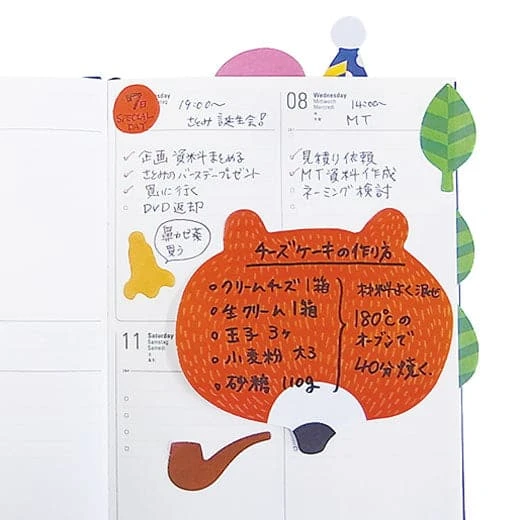 7日
SPECIAL DAY
19:00〜
さとみ 誕生会!
✓ 企画資料まとめる
✓ さとみのバースデープレゼント
✓ 買いに行く
○ DVD返却
鼻かぜ薬
買う
08 Wednesday
Mittwoch
Mercredi
14:00〜
MT
✓ 見積り依頼
✓ MT資料作成
○ ネーミング検討
チーズケーキの作り方
○ クリームチーズ 1箱
○ 生クリーム 1箱
○ 玉子 3ヶ
○ 小麦粉 大3
○ 砂糖 110g
材料よく混ぜ
180℃の
オーブンで
40分焼く.
11 Saturday
Samstag
Samedi